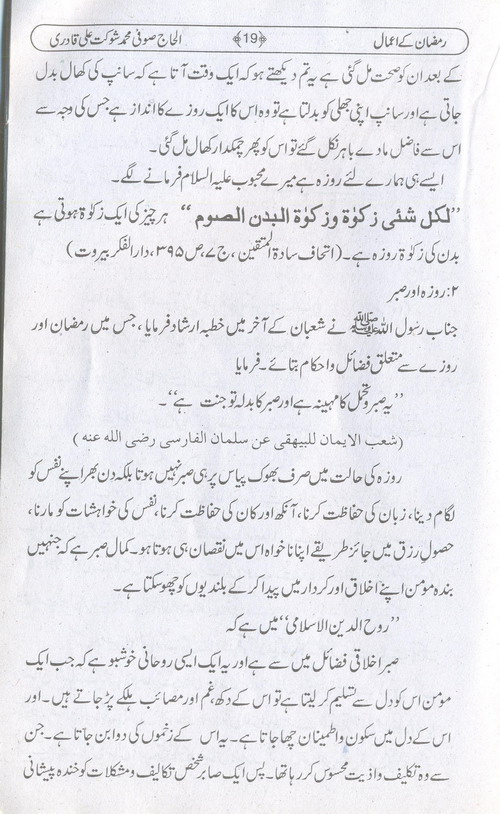 رمضان کے اعمال ﴿19﴾ الحاج صوفی محمد شوکت علی قادری
کے بعد ان کو صحت مل گئی ہے یہ تم دیکھتے ہو کہ ایک وقت آتا ہے کہ سانپ کی کھال بدل
جاتی ہے اور سانپ اپنی جھلی کو بدلتا ہے تو وہ اس کا ایک روزے کا انداز ہے جس کی وجہ سے
اس سے فاضل مادے باہر نکل گئے تو اس کو پھر چمکدار کھال مل گئی۔
ایسے ہی ہمارے لئے روزہ ہے میرے محبوب علیہ السلام فرمانے لگے۔
’’لکل شئی زکوٰۃ وزکوٰۃ البدن الصوم‘‘ ہر چیز کی ایک زکوٰۃ ہوتی ہے
بدن کی زکوٰۃ روزہ ہے۔ (اتحاف سادۃ المتقین، ج ۷، ص ۳۹۵، دار الفکر بیروت)
۲: روزہ اور صبر
جناب رسول اللہ ﷺ نے شعبان کے آخر میں خطبہ ارشاد فرمایا، جس میں رمضان اور
روزے سے متعلق فضائل و احکام بتائے۔ فرمایا
’’یہ صبر و تحمل کا مہینہ ہے اور صبر کا بدلہ تو جنت ہے‘‘۔
(شعب الایمان للبیھقی عن سلمان الفارسی رضی الله عنه)
روزہ کی حالت میں صرف بھوک پیاس پر ہی صبر نہیں ہوتا بلکہ دن بھر اپنے نفس کو
لگام دینا، زبان کی حفاظت کرنا، آنکھ اور کان کی حفاظت کرنا، نفس کی خواہشات کو مارنا،
حصول رزق میں جائز طریقے اپنانا خواہ اس میں نقصان ہی ہوتا ہو۔ کمال صبر ہے کہ جنہیں
بندہ مومن اپنے اخلاق اور کردار میں پیدا کر کے بلندیوں کو چھو سکتا ہے۔
’’روح الدین الاسلامی‘‘ میں ہے کہ
صبر اخلاقی فضائل میں سے ہے اور یہ ایک ایسی روحانی خوشبو ہے کہ جب ایک
مومن اس کو دل سے تسلیم کر لیتا ہے تو اس کے دکھ، غم اور مصائب ہلکے پڑ جاتے ہیں۔ اور
اس کے دل میں سکون و اطمینان چھا جاتا ہے۔ یہ اس کے زخموں کی دوا بن جاتا ہے۔ جن
سے وہ تکلیف و اذیت محسوس کر رہا تھا۔ پس ایک صابر شخص تکالیف و مشکلات کو خندہ پیشانی